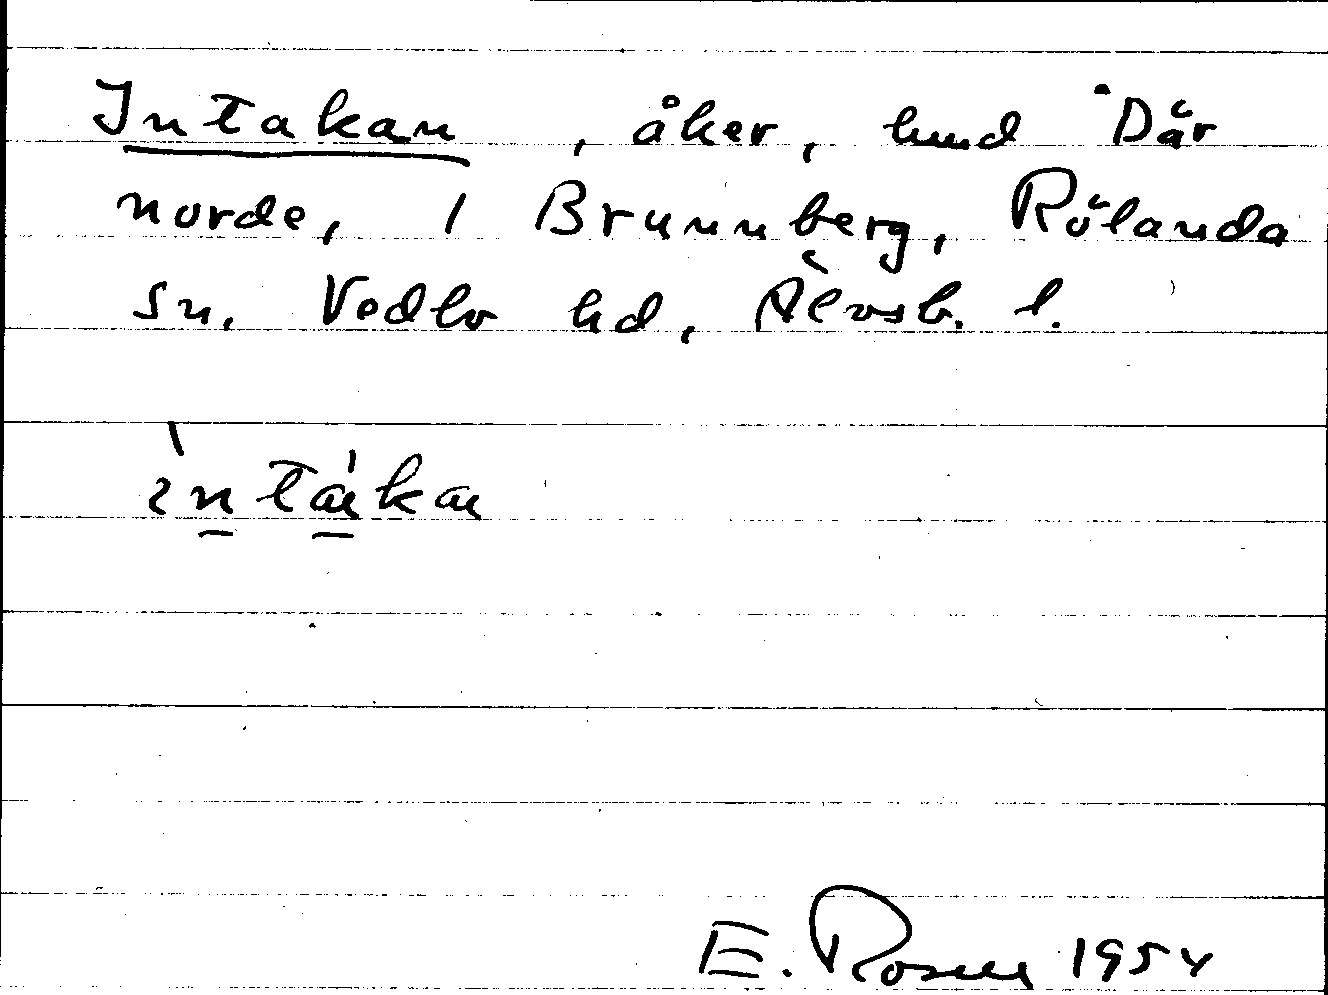 Intakan, åker, hmd Där
norde, 1 Brunnberg, Rölanda
sn, Vedbo hd, Älvsb. l.
E. Rosell 1954